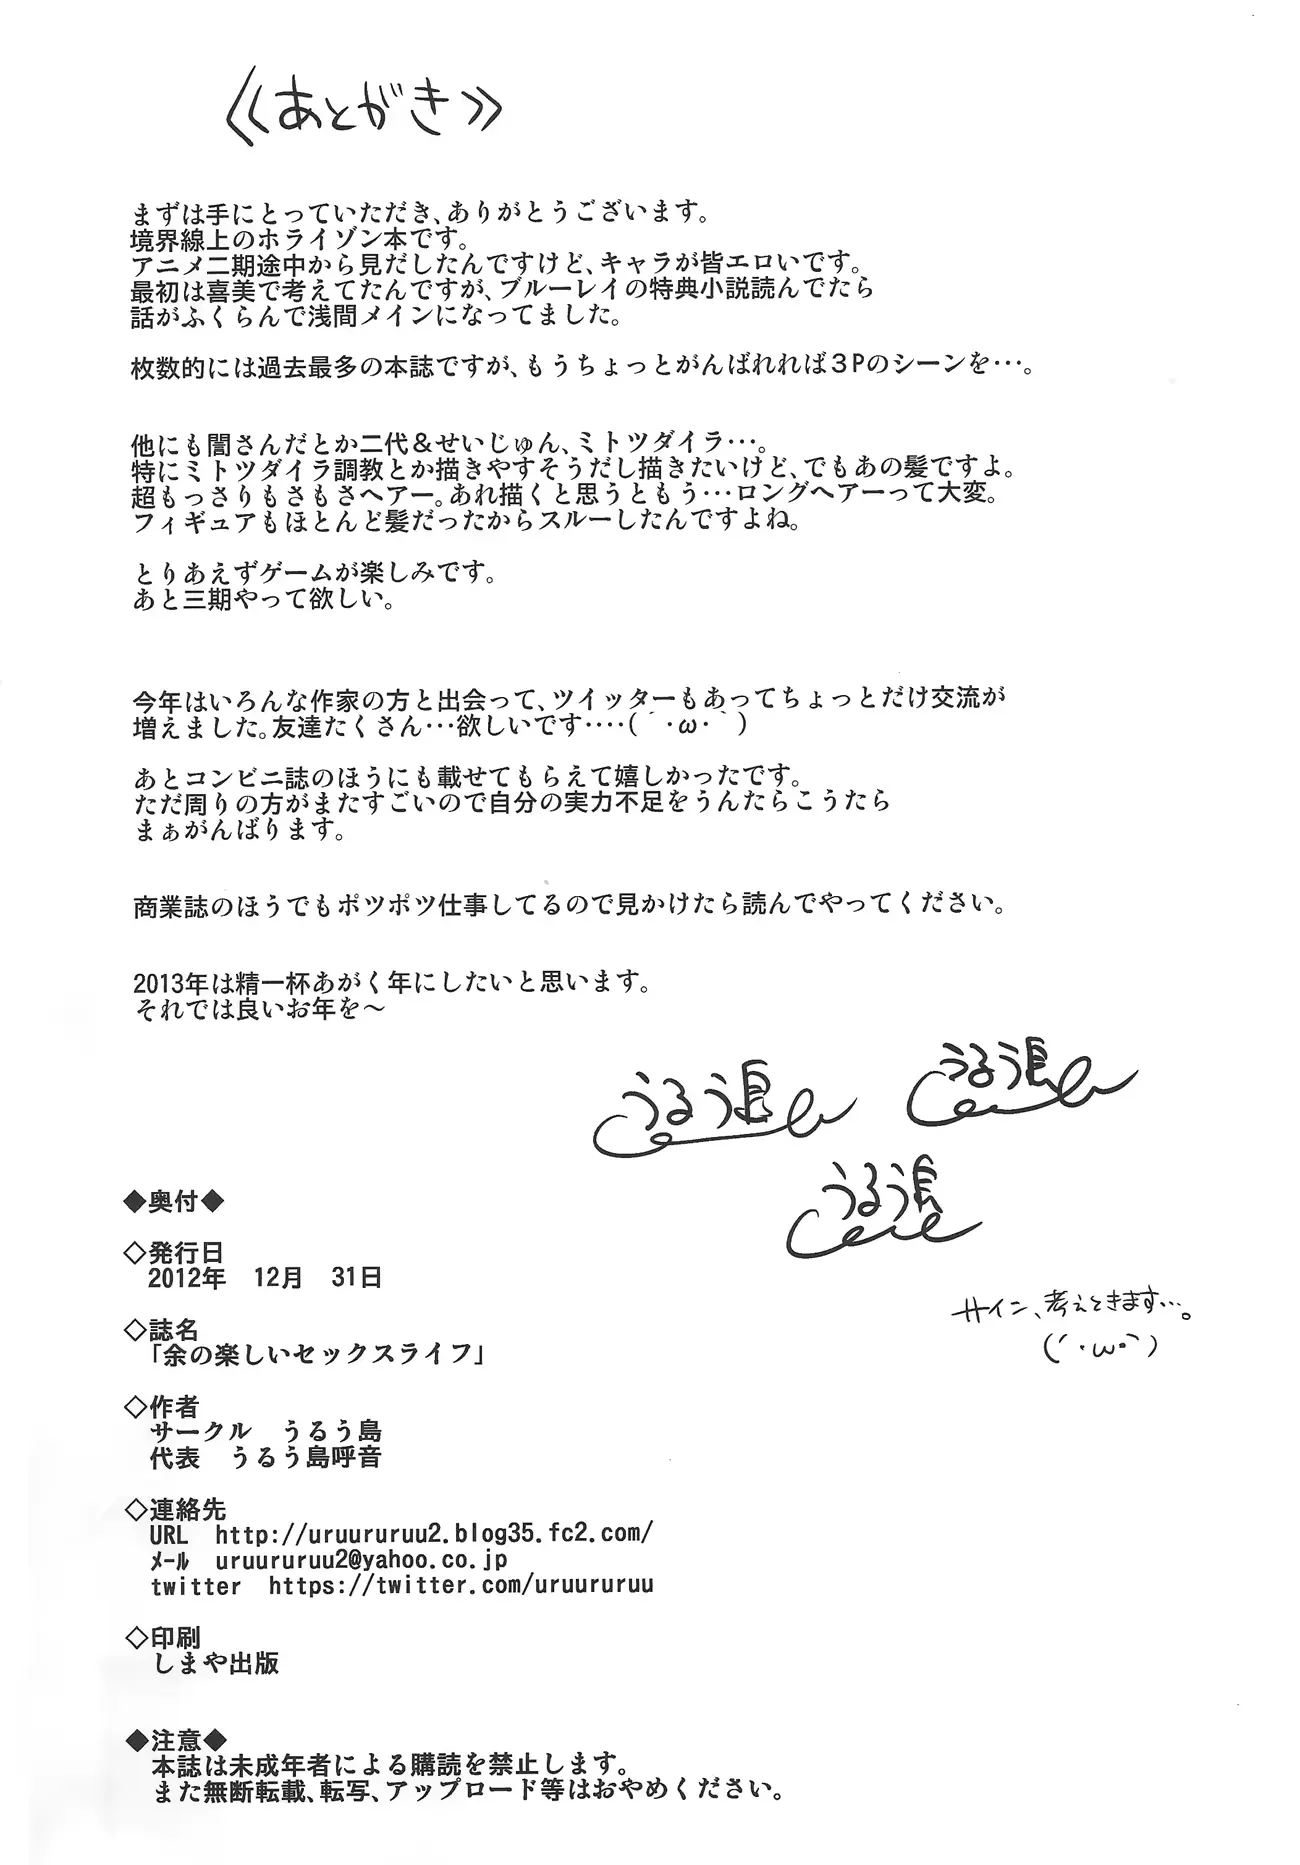 ≪あとがき≫
まずは手にとっていただき、ありがとうございます。
境界線上のホライゾン本です。
アニメ二期途中から見だしたんですけど、キャラが皆エロいです。
最初は喜美で考えてたんですが、ブルーレイの特典小説読んでたら
話がふくらんで浅間メインになってました。
枚数的には過去最多の本誌ですが、もうちょっとがんばれれば３Pのシーンを…。
他にも闇さんだとか二代＆せいじゅん、ミトツダイラ…。
特にミトツダイラ調教とか描きやすそうだし描きたいけど、でもあの髪ですよ。
超もっさりもさもさヘアー。あれ描くと思うともう…ロングヘアーって大変。
フィギュアもほとんど髪だったからスルーしたんですよね。
とりあえずゲームが楽しみです。
あと三期やって欲しい。
今年はいろんな作家の方と出会って、ツイッターもあってちょっとだけ交流が
増えました。友達たくさん…欲しいです‥‥(´・ω・｀)
あとコンビニ誌のほうにも載せてもらえて嬉しかったです。
ただ周りの方がまたすごいので自分の実力不足をうんたらこうたら
まぁがんばります。
商業誌のほうでもポツポツ仕事してるので見かけたら読んでやってください。
2013年は精一杯あがく年にしたいと思います。
それでは良いお年を～
うるう島
うるう島
うるう島
サイン、考えときます…。
(´・ω・｀)
◆奥付◆
◇発行日
2012年　12月　31日
◇誌名
「余の楽しいセックスライフ」
◇作者
サークル　うるう島
代表　うるう島呼音
◇連絡先
URL　http://uruururuu2.blog35.fc2.com/
ﾒｰﾙ　uruururuu2@yahoo.co.jp
twitter　https://twitter.com/uruururuu
◇印刷
しまや出版
◆注意◆
本誌は未成年者による購読を禁止します。
また無断転載、転写、アップロード等はおやめください。